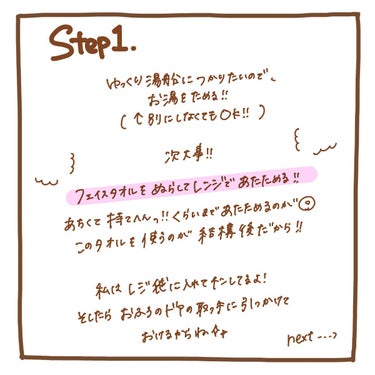 Step1.
ゆっくり湯船につかりたいので、
お湯をためる!!
(↑別にしなくてもOK!!)
次大事!!
フェイスタオルをぬらしてレンジであたためる!!
あちくて持てへんっ!!くらいまであたためるのが◎
このタオルを使うのが結構後だから!!
私はレジ袋に入れてチンしてるよ!
そしたらおふろのドアの取っ手に引っかけて
おけるからね
next--->